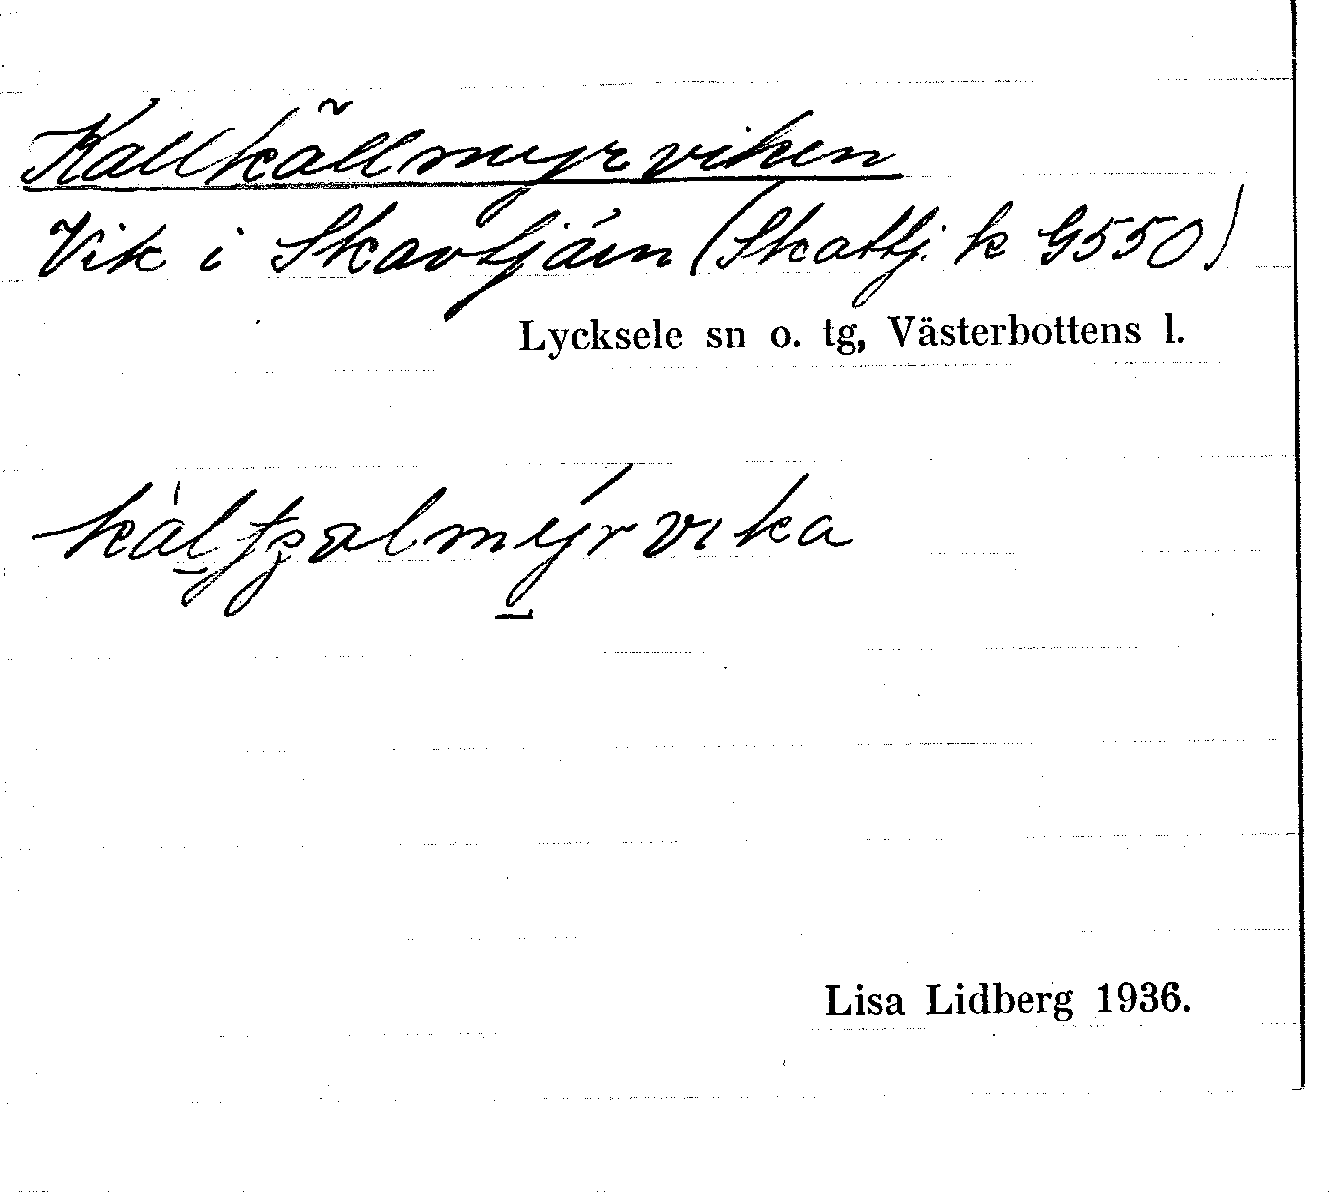 Kallkällmyrviken
Vik i Skavtjärn (Skattj. k G550)
Lycksele sn o. tg, Västerbottens l.
Lisa Lidberg 1936.